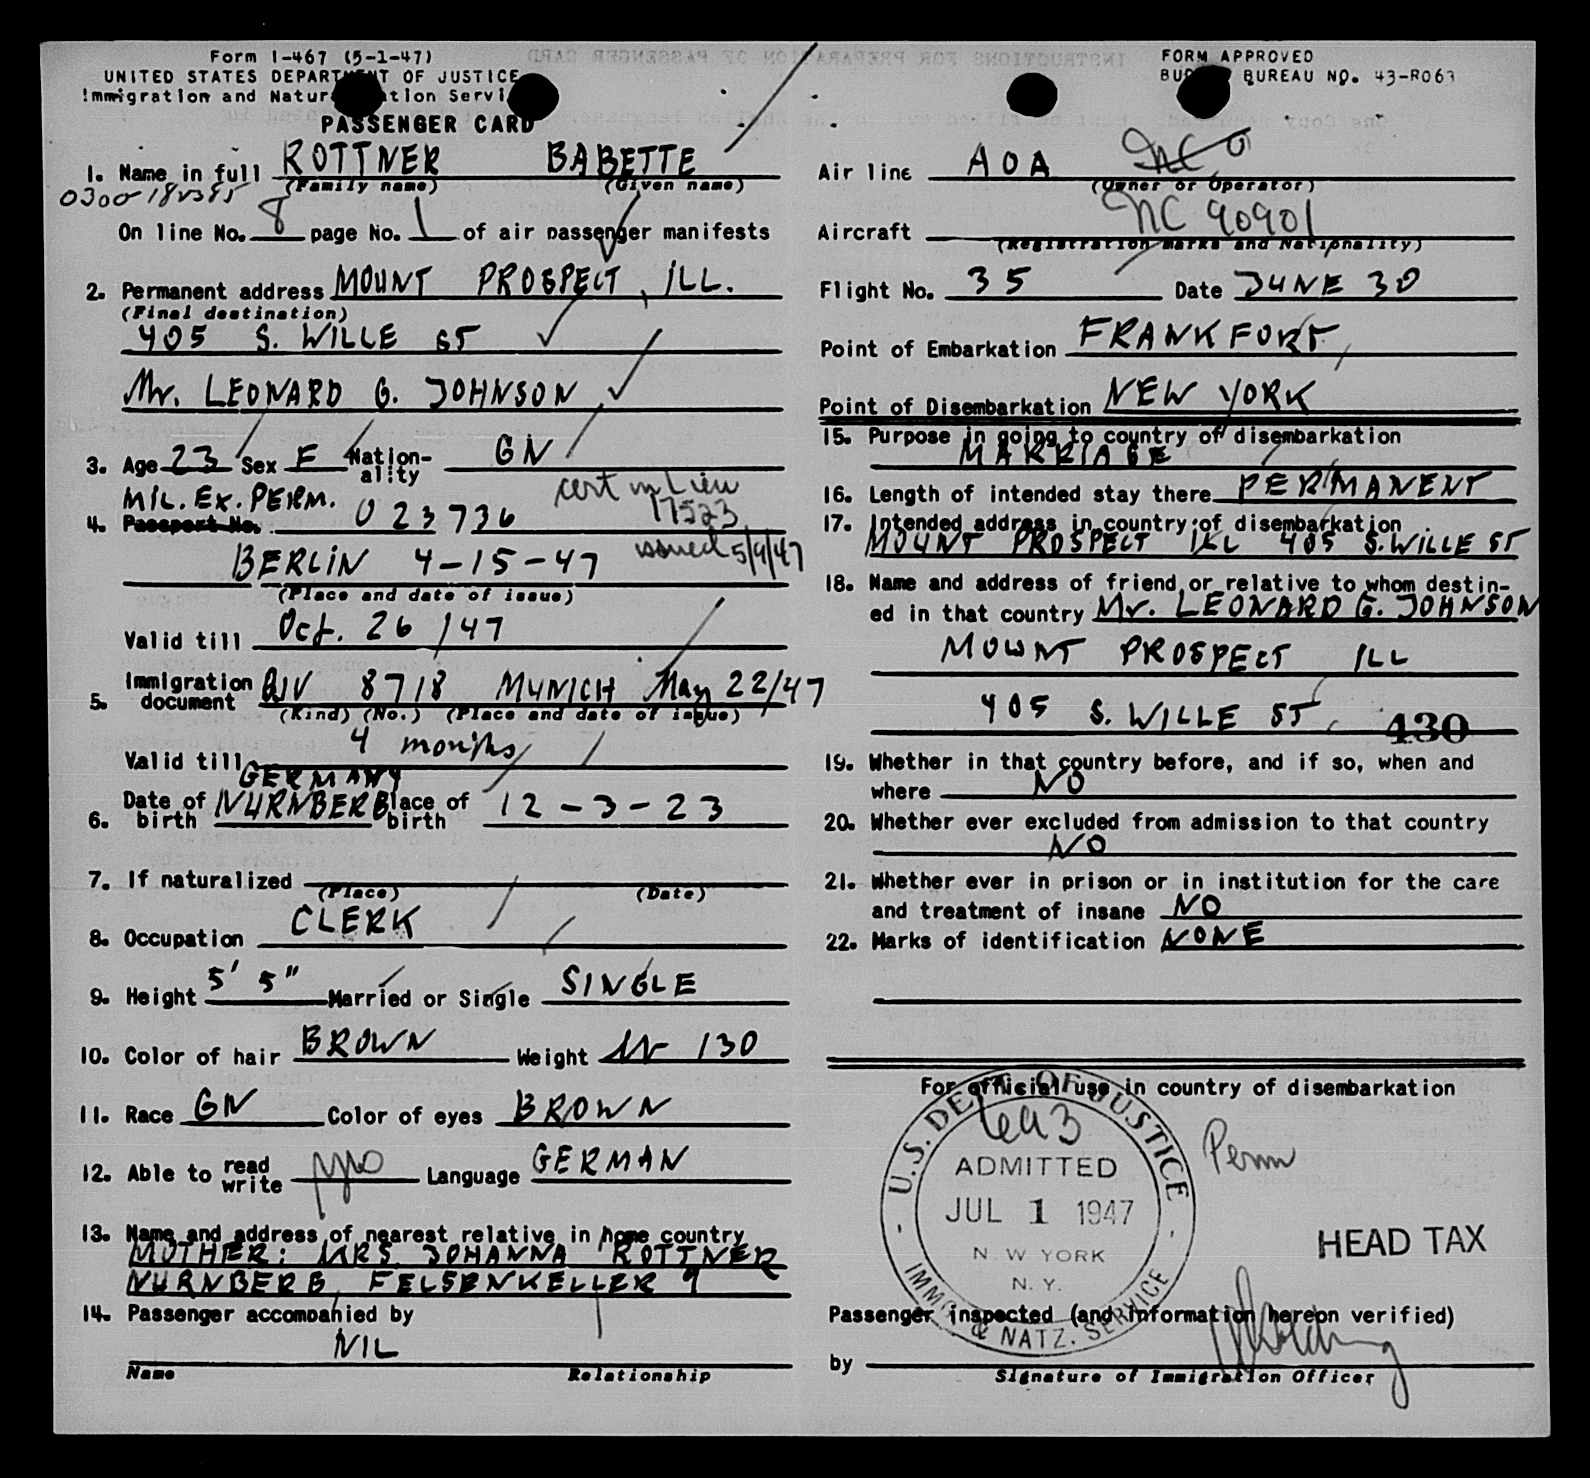 Form I-467 (5-1-47)
UNITED STATES DEPARTMENT OF JUSTICE
Immigration and Naturalization Service
PASSENGER CARD
1. Name in full ROTTNER BABETTE
(Family name) (Given name)
On line No. 8 page No. 1 of air passenger manifests
2. Permanent address MOUNT PROSPECT, ILL.
(Final destination)
405 S. WILLE ST
Mr. LEONARD G. JOHNSON
3. Age 23 Sex F Nation-ality GN
MIL. EX. PERM. cert in Lieu
4. Passport No. 023736 17523
BERLIN 4-15-47 issued 5/9/47
(Place and date of issue)
Valid till Oct. 26/47
5. Immigration document QIV 8718 MUNICH May 22/47
(Kind) (No.) (Place and date of issue)
Valid till 4 months
GERMANY
6. Date of birth NURNBERG Place of birth 12-3-23
7. If naturalized
(Place) (Date)
8. Occupation CLERK
9. Height 5' 5" Married or Single SINGLE
10. Color of hair BROWN Weight 130
11. Race GN Color of eyes BROWN
12. Able to read write Language GERMAN
13. Name and address of nearest relative in home country
MOTHER: MRS. JOHANNA ROTTNER
NURNBERG, FELSENKELLER 9
14. Passenger accompanied by
NIL
Name Relationship
FORM APPROVED
BUREAU NO. 43-R063
Air line AOA
(Owner or Operator)
Aircraft NC 90901
(Registration marks and Nationality)
Flight No. 35 Date JUNE 30
Point of Embarkation FRANKFURT
Point of Disembarkation NEW YORK
15. Purpose in going to country of disembarkation
MARRIAGE
16. Length of intended stay there PERMANENT
17. Intended address in country of disembarkation
MOUNT PROSPECT ILL 405 S. WILLE ST
18. Name and address of friend or relative to whom destin-
ed in that country Mr. LEONARD G. JOHNSON
MOUNT PROSPECT ILL
405 S. WILLE ST 430
19. Whether in that country before, and if so, when and
where NO
20. Whether ever excluded from admission to that country
NO
21. Whether ever in prison or in institution for the care
and treatment of insane NO
22. Marks of identification NONE
For official use in country of disembarkation
U.S. DEPT. OF JUSTICE
4a3
ADMITTED
JUL 1 1947
N W YORK
N. Y.
IMMG. & NATZ. SERVICE
Perm
HEAD TAX
Passenger inspected (and information hereon verified)
by
Signature of Immigration Officer